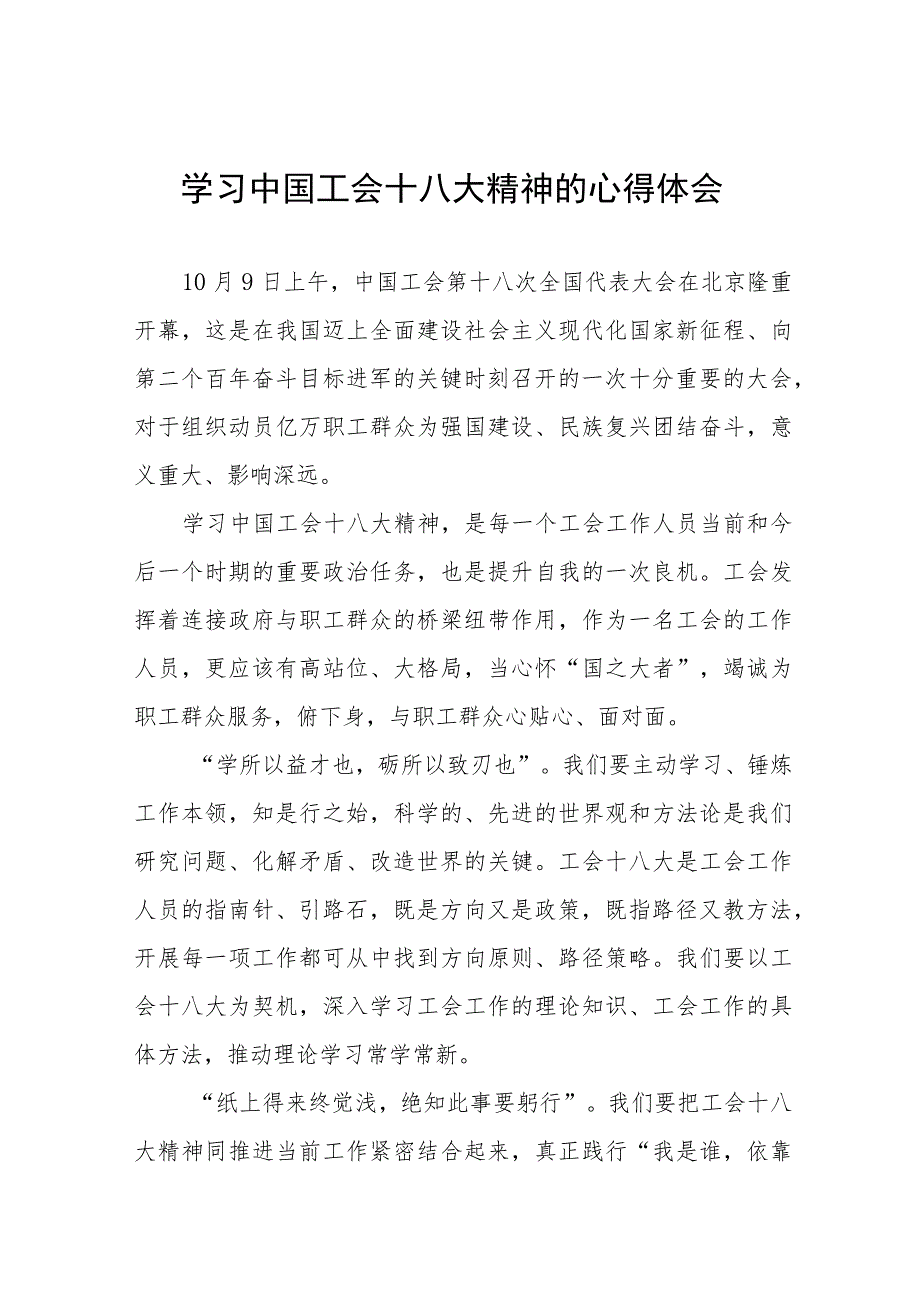 学习中国工会十八大精神的心得体会
10月9日上午，中国工会第十八次全国代表大会在北京隆重
开幕，这是在我国迈上全面建设社会主义现代化国家新征程、向
第二个百年奋斗目标进军的关键时刻召开的一次十分重要的大会，
对于组织动员亿万职工群众为强国建设、民族复兴团结奋斗，意
义重大、影响深远。
学习中国工会十八大精神，是每一个工会工作人员当前和今
后一个时期的重要政治任务，也是提升自我的一次良机。工会发
挥着连接政府与职工群众的桥梁纽带作用，作为一名工会的工作
人员，更应该有高站位、大格局，当心怀“国之大者”，竭诚为
职工群众服务，俯下身，与职工群众心贴心、面对面。
“学所以益才也，砺所以致刃也”。我们要主动学习、锤炼
工作本领，知是行之始，科学的、先进的世界观和方法论是我们
研究问题、化解矛盾、改造世界的关键。工会十八大是工会工作
人员的指南针、引路石，既是方向又是政策，既指路径又教方法，
开展每一项工作都可从中找到方向原则、路径策略。我们要以工
会十八大为契机，深入学习工会工作的理论知识、工会工作的具
体方法，推动理论学习常学常新。
“纸上得来终觉浅，绝知此事要躬行”。我们要把工会十八
大精神同推进当前工作紧密结合起来，真正践行“我是谁，依靠